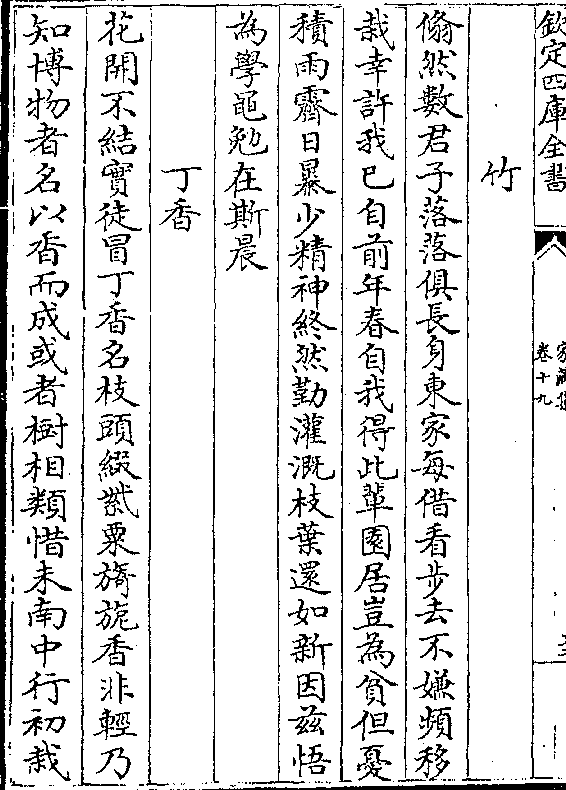 欽定四庫全書
家藏集
卷十九
竹
翛然數君子落落俱長身東家每借看步去不嫌頻移
栽幸許我已自前年春自我得此輩園居豈為貧但憂
積雨霽日暴少精神終然勤灌溉枝葉還如新因茲悟
為學黽勉在斯晨
丁香
花開不結實徒冒丁香名枝頭綴紫粟旖旎香非輕乃
知博物者名以香而成或者樹相類惜未南中行初栽